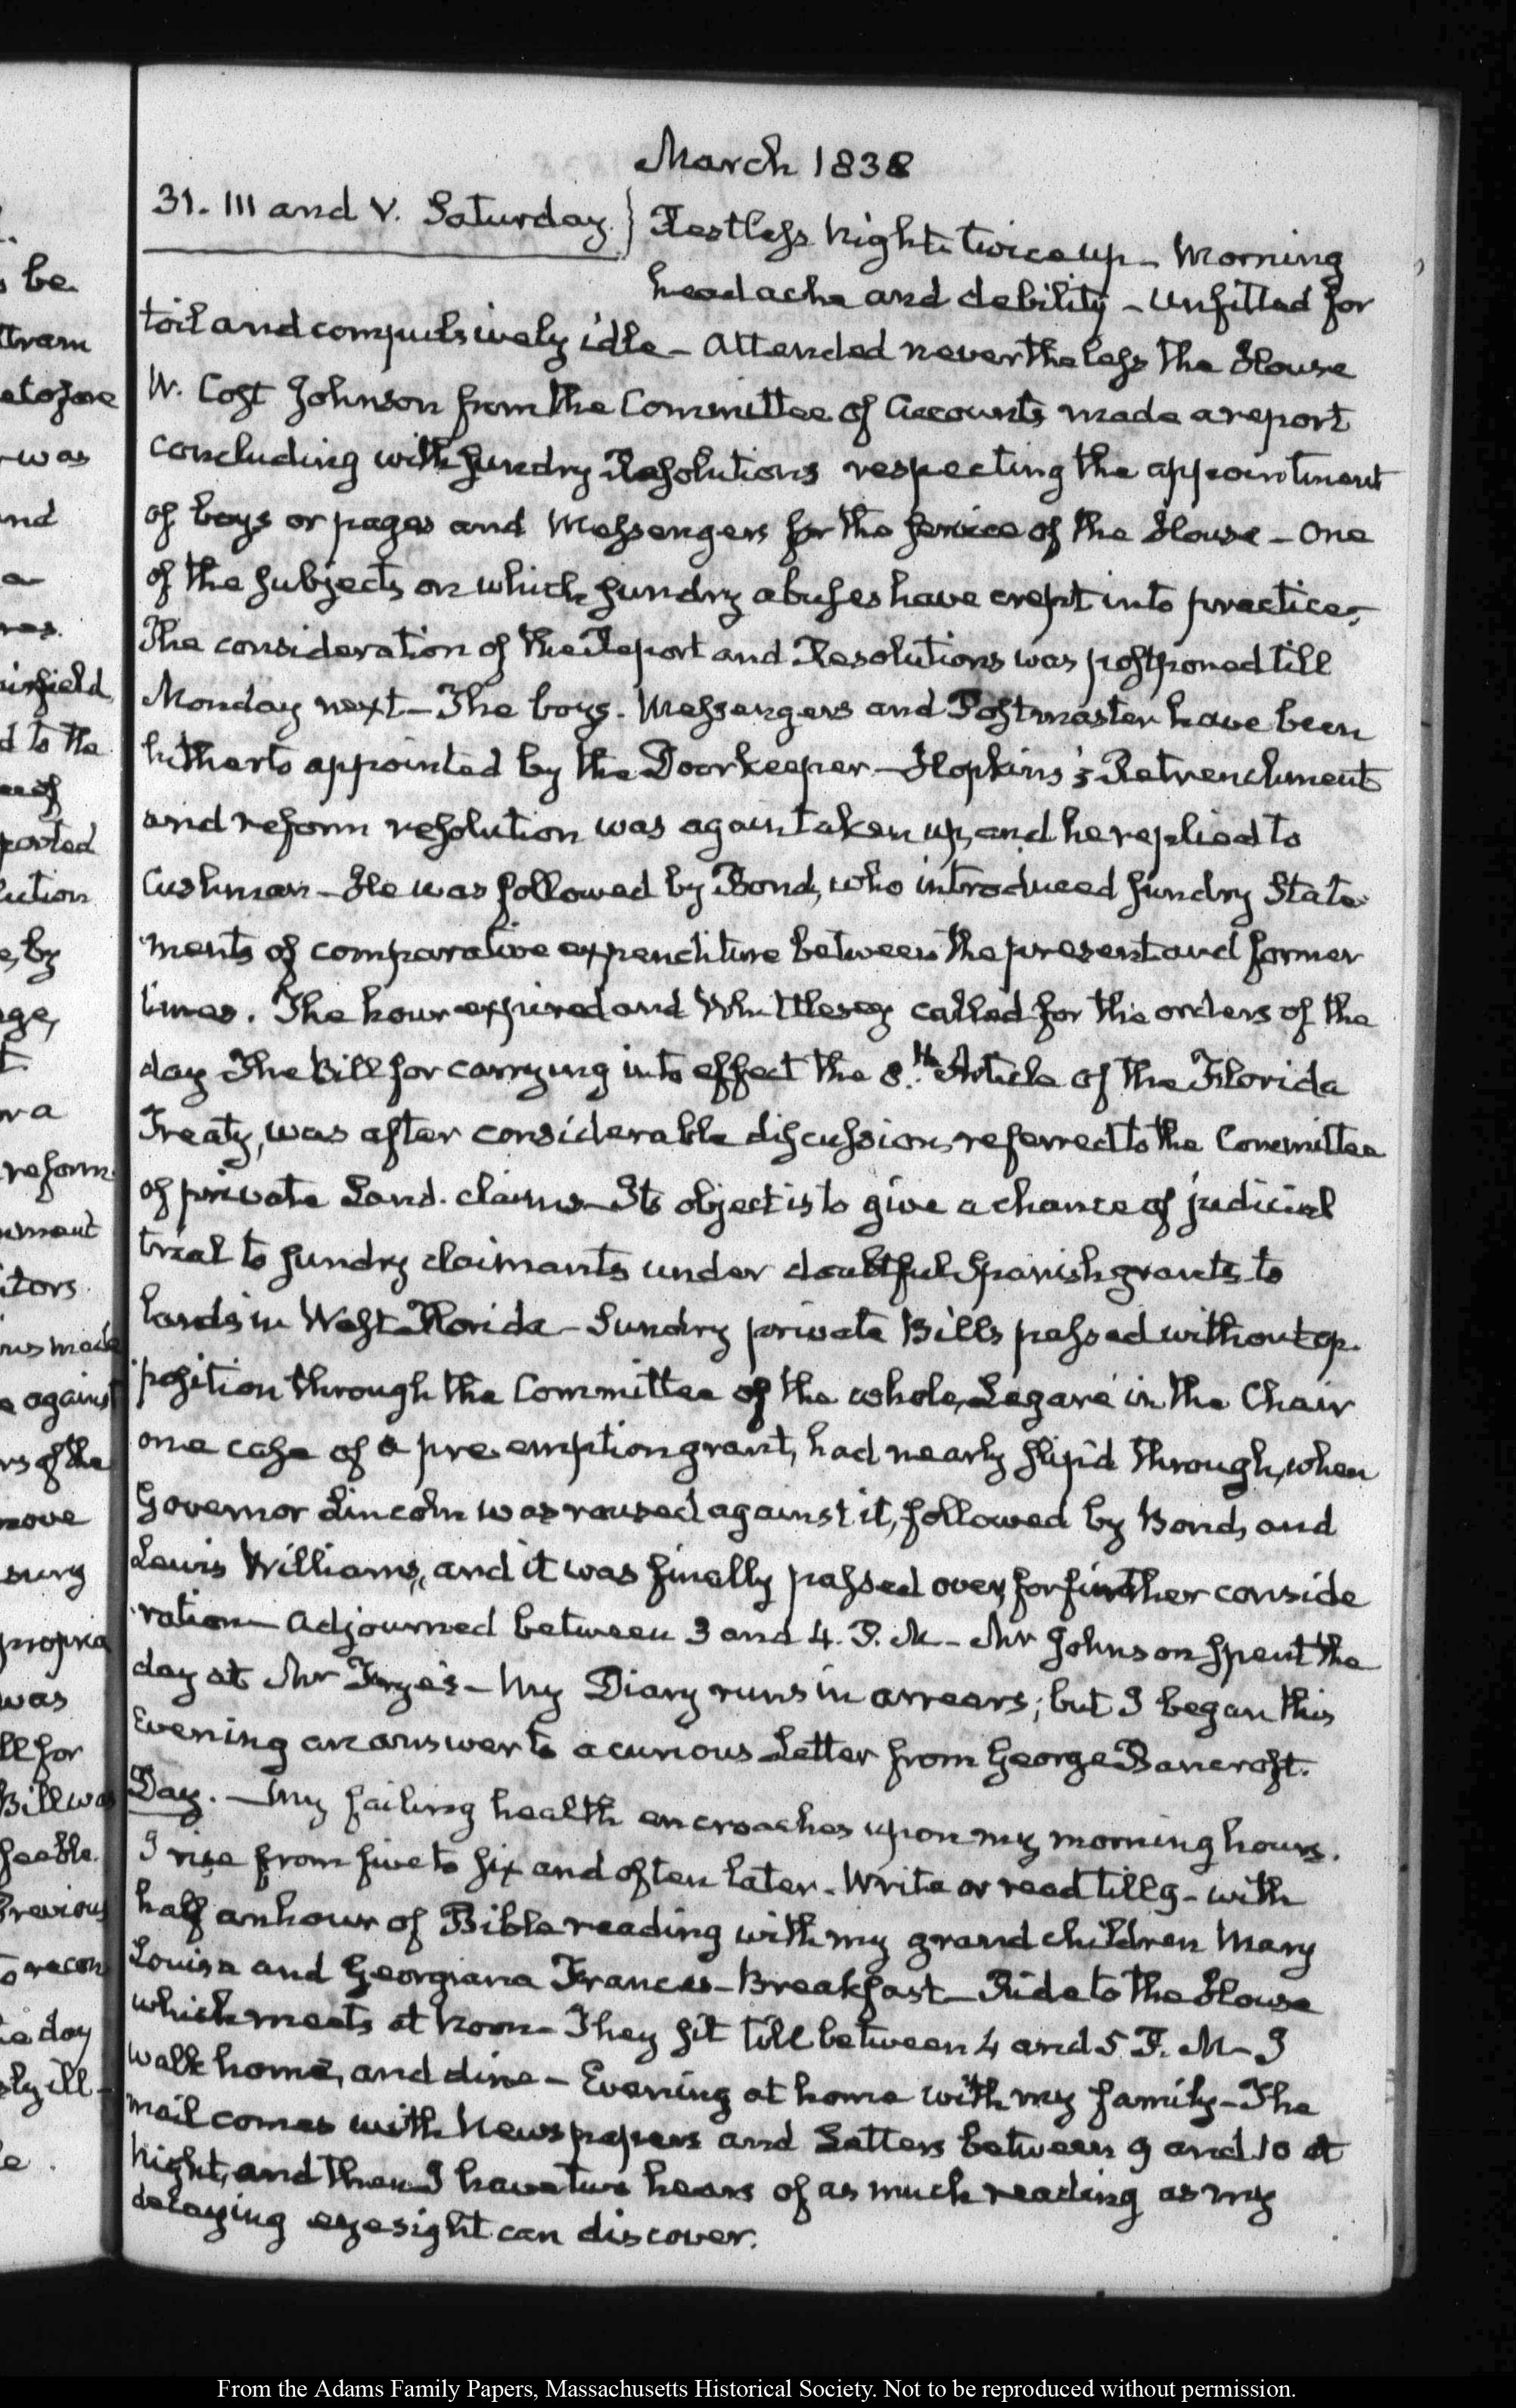 March 1838
31. III and V. Saturday.} Restless Night. twice up – Morning
headache and debility – Unfitted for
toil and compulsively idle – Attended nevertheless the House
W. Cost Johnson from the Committee of Accounts made a report
concluding with sundry Resolutions respecting the appointment
of boys or pages and Messengers for the service of the House – One
of the subjects on which sundry abuses have crept into practice,
The consideration of the Report and Resolutions was postponed till
Monday next – The boys. Messengers and Postmaster have been
hitherto appointed by the Doorkeeper – Hopkins's Retrenchment
and reform resolution was again taken up, and he replied to
Cushman – He was followed by Bond, who introduced sundry State
ments of comparative expenditure between the present and former
times. The hour expired and Whittlesey called for the orders of the
day The Bill for carrying into effect the 8.th Article of the Florida
Treaty, was after considerable discussion, referred to the Committee
of private Land. claims – Its object is to give a chance of judicial
trial to sundry claimants under doubtful Spanish grants to
lands in West-Florida – Sundry private Bills passed without op-
position through the Committee of the whole, Legaré in the Chair
one case of a pre-emption grant, had nearly slip'd through, when
Governor Lincoln was roused against it, followed by Bond, and
Lewis Williams, and it was finally passed over, for further conside
ration – Adjourned between 3 and 4. P. M – Mr Johnson spent the
day at Mr Frye's – My Diary runs in arrears; but I began this
Evening an answer to a curious Letter from George Bancroft.
Day. – My failing health encroaches upon my morning hours.
I rise from five to six and often later – Write or read till 9 – with
half an hour of Bible reading with my grand children Mary
Louisa and Georgiana Frances – Breakfast – Ride to the House
which meets at Noon – They sit till between 4 and 5 P. M – I
walk home, and dine – Evening at home with my family – The
mail comes with Newspapers and Letters between 9 and 10 at
Night, and then I have two hours of as much reading as my
decaying eyesight can discover.
be
was
nd
d to the
ported
lution
by
reform
itors
against
rs of the
was
ll for
Bill was
feeble
recon
day
ill –
From the Adams Family Papers, Massachusetts Historical Society. Not to be reproduced without permission.